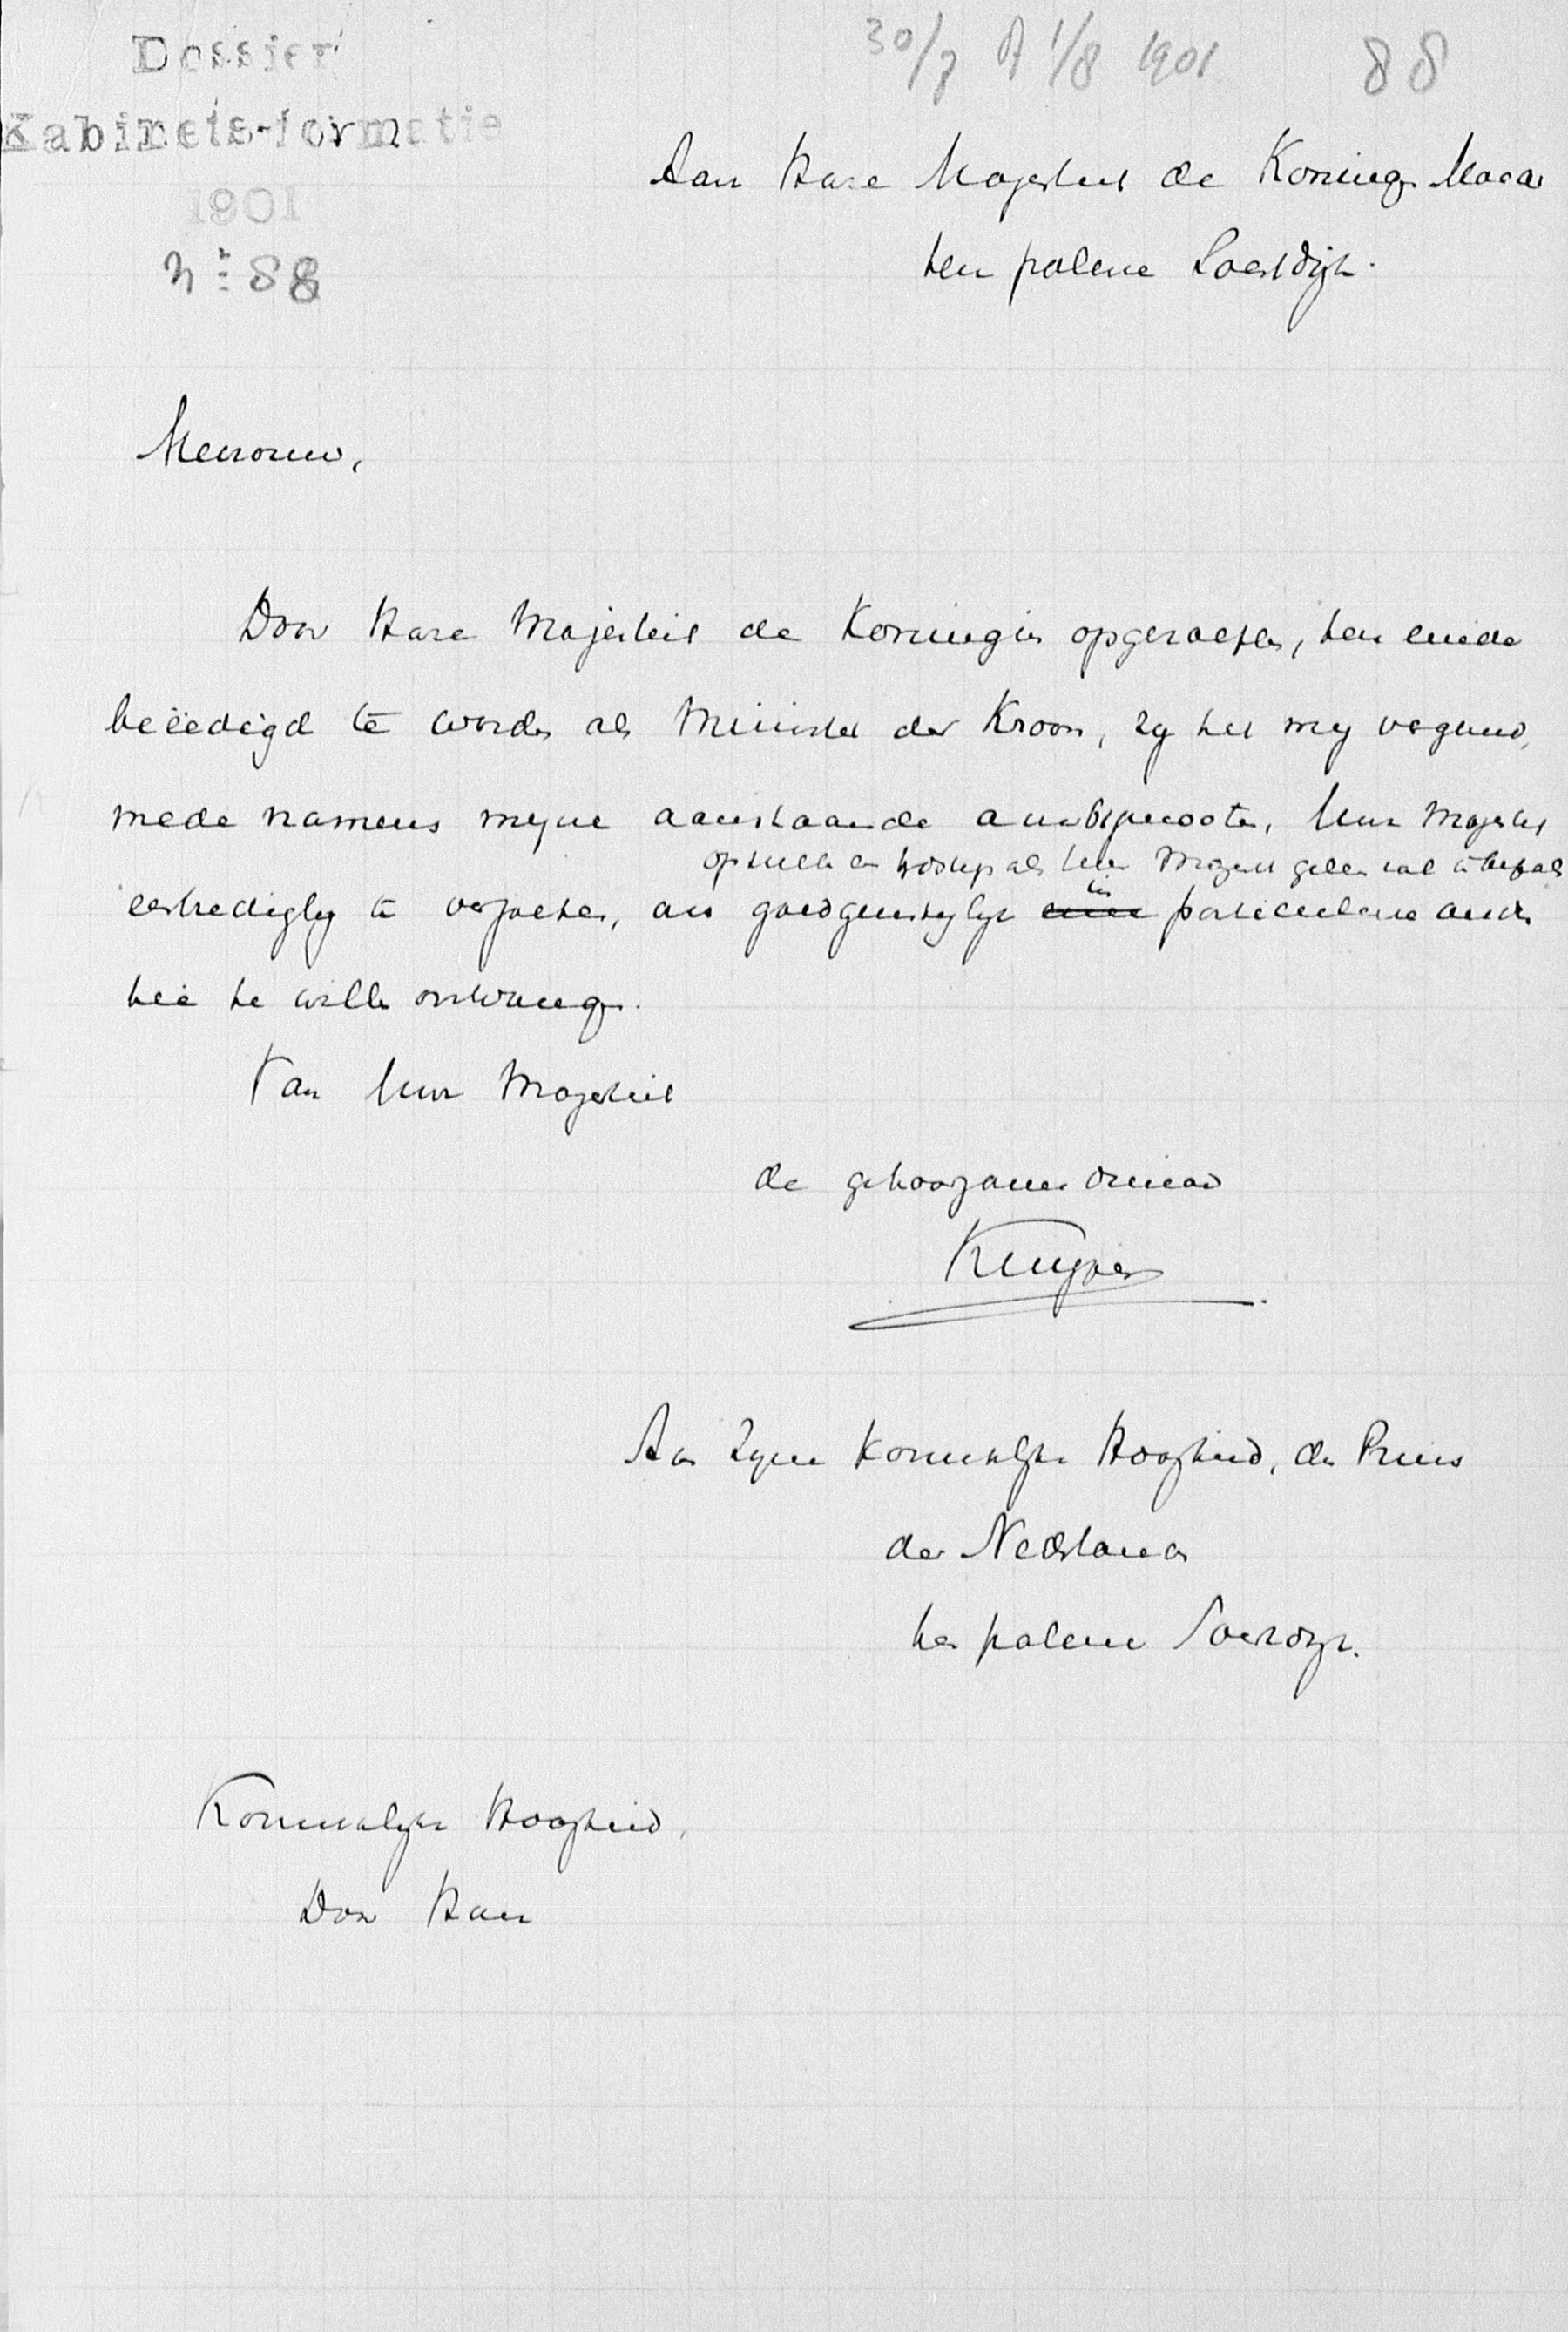 Dossier
Kabinets-formatie
1901
nº 88
30/7 A 1/8 1901 88
Aan Hare Majesteit de Koningin Moeder
ten paleize Soestdijk.
Mevrouw,
Door Hare Majesteit de Koningin opgeroepen, ten einde
beëedigd te worden als Minister der Kroon, zy het my vergund,
mede namens myne aanstaande ambtgenooten, Uwe Majesteit
op zulk een tydstip als Uwe Majesteit gelieven zal te bepalen
eerbiediglyk te verzoeken, ons goedgunstiglyk in particuliere audien
tie te willen ontvangen.
Van Uwe Majesteit
de gehoorzame dienaar
Kuyper
Aan Zyne Koninklyke Hoogheid, den Prins
der Nederlanden
ten paleize Soestdyk.
Koninklyke Hoogheid,
Door Hare